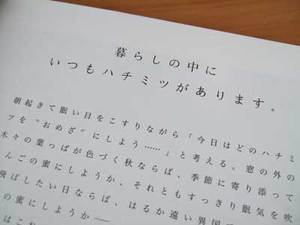 暮らしの中に
いつもハチミツがあります。
朝起きて眠い目をこすりながら「今日はどのハチミ
ツを〝おめざ〟にしよう……」と考える。窓の外の
木々の葉っぱが色づく秋ならば、季節に寄り添って
んごの蜜にしようか、それともすっきり眠気を吹
飛ばしたい日ならば、はるか遠い異国
の蜜にしようか――
はこ